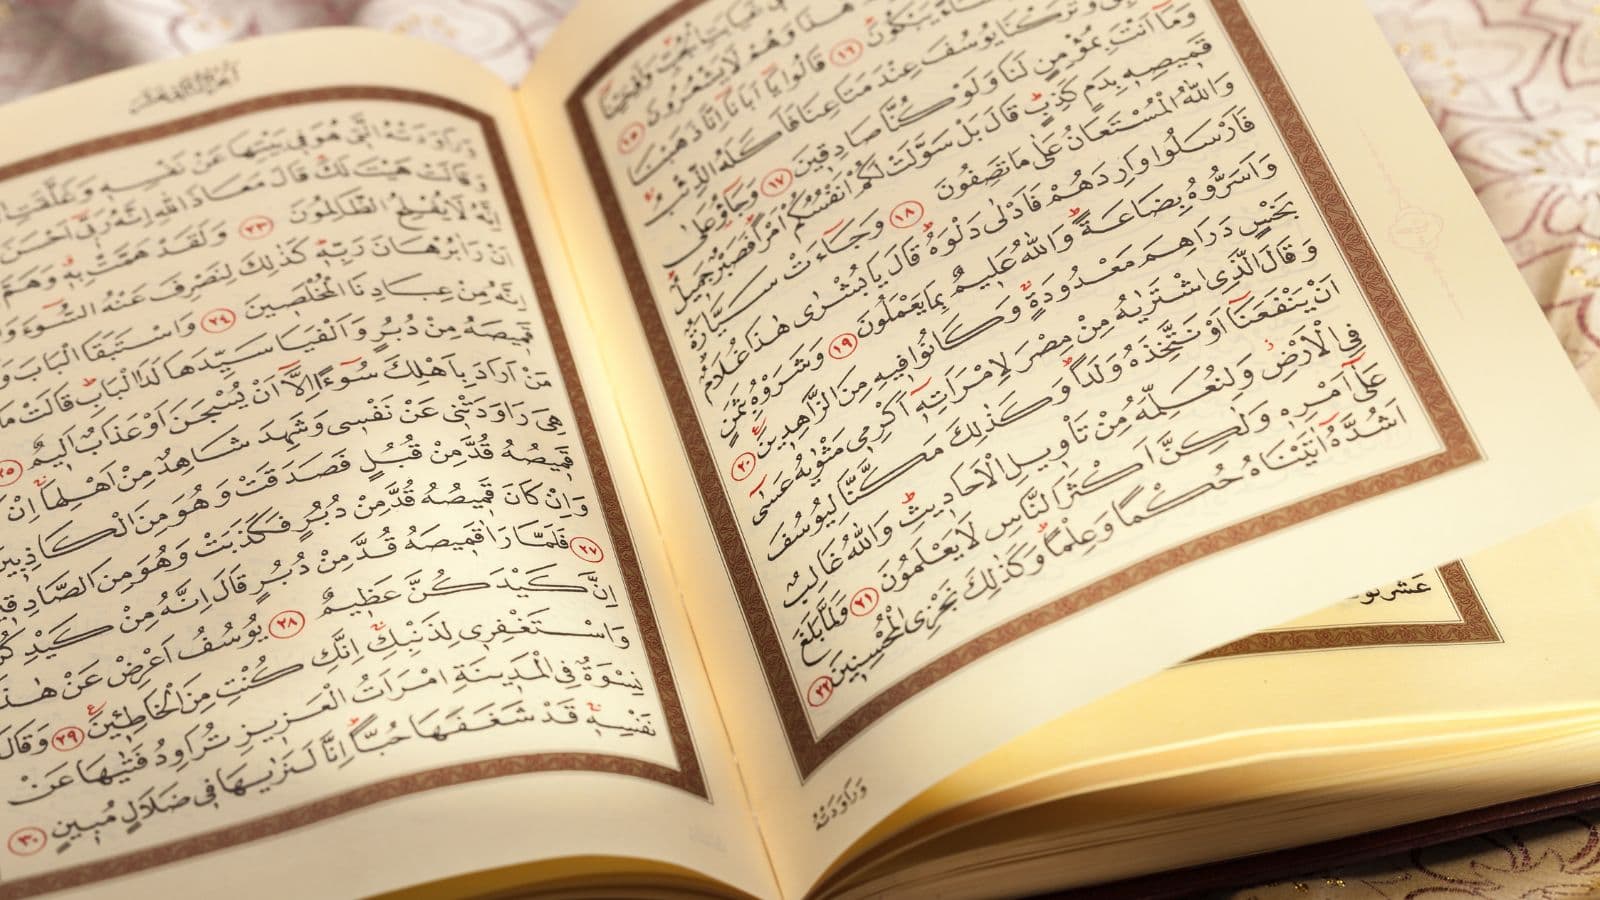 غَيَابَتِ الْجُبِّ وَاَوْحَيْنَا
هٰذَا وَهُمْ لَا يَشْعُرُونَ ١٥
يَبْكُونَ ١٦ قَالُوا يَا اَبَانَا اِنَّا ذَهَبْنَا
وَتَرَكْنَا يُوسُفَ عِنْدَ مَتَاعِنَا فَاَكَلَهُ الذِّئْبُ
وَمَا اَنْتَ بِمُؤْمِنٍ لَنَا وَلَوْ كُنَّا صَادِقِينَ ١٧ وَجَاؤُ عَلٰى
قَمِيصِهِ بِدَمٍ كَذِبٍ قَالَ بَلْ سَوَّلَتْ لَكُمْ اَنْفُسُكُمْ اَمْرًا فَصَبْرٌ جَمِيلٌ
وَاللّٰهُ الْمُسْتَعَانُ عَلٰى مَا تَصِفُونَ ١٨ وَجَاءَتْ سَيَّارَةٌ
فَاَرْسَلُوا وَارِدَهُمْ فَاَدْلٰى دَلْوَهُ قَالَ يَا بُشْرٰى هٰذَا غُلَامٌ
وَاَسَرُّوهُ بِضَاعَةً وَاللّٰهُ عَلِيمٌ بِمَا يَعْمَلُونَ ١٩ وَشَرَوْهُ بِثَمَنٍ
بَخْسٍ دَرَاهِمَ مَعْدُودَةٍ وَكَانُوا فِيهِ مِنَ الزَّاهِدِينَ ٢٠
وَقَالَ الَّذِى اشْتَرٰيهُ مِنْ مِصْرَ لِامْرَاَتِهِ اَكْرِمِى مَثْوٰيهُ عَسٰى
اَنْ يَنْفَعَنَا اَوْ نَتَّخِذَهُ وَلَدًا وَكَذٰلِكَ مَكَّنَّا لِيُوسُفَ
فِى الْاَرْضِ وَلِنُعَلِّمَهُ مِنْ تَأْوِيلِ الْاَحَادِيثِ وَاللّٰهُ غَالِبٌ
عَلٰى اَمْرِهِ وَلٰكِنَّ اَكْثَرَ النَّاسِ لَا يَعْلَمُونَ ٢١ وَلَمَّا بَلَغَ
اَشُدَّهُ اٰتَيْنَاهُ حُكْمًا وَعِلْمًا وَكَذٰلِكَ نَجْزِى الْمُحْسِنِينَ ٢٢
وَرَاوَدَتْهُ
وَرَاوَدَتْهُ الَّتِى هُوَ فِى بَيْتِهَا عَنْ نَفْسِهِ وَغَلَّقَتِ
وَقَالَتْ هَيْتَ لَكَ قَالَ مَعَاذَ اللّٰهِ اِنَّهُ رَبِّى اَحْسَنَ
اِنَّهُ لَا يُفْلِحُ الظَّالِمُونَ ٢٣ وَلَقَدْ هَمَّتْ بِهِ وَهَمَّ
اَنْ رَاٰ بُرْهَانَ رَبِّهِ كَذٰلِكَ لِنَصْرِفَ عَنْهُ السُّوءَ
اِنَّهُ مِنْ عِبَادِنَا الْمُخْلَصِينَ ٢٤ وَاسْتَبَقَا الْبَابَ
قَمِيصَهُ مِنْ دُبُرٍ وَاَلْفَيَا سَيِّدَهَا لَدَا الْبَابِ قَالَتْ مَا
مَنْ اَرَادَ بِاَهْلِكَ سُوءًا اِلَّا اَنْ يُسْجَنَ اَوْ عَذَابٌ اَلِيمٌ ٢٥
هِىَ رَاوَدَتْنِى عَنْ نَفْسِى وَشَهِدَ شَاهِدٌ مِنْ اَهْلِهَا اِنْ
قَمِيصُهُ قُدَّ مِنْ قُبُلٍ فَصَدَقَتْ وَهُوَ مِنَ الْكَاذِبِينَ
وَاِنْ كَانَ قَمِيصُهُ قُدَّ مِنْ دُبُرٍ فَكَذَبَتْ وَهُوَ مِنَ الصَّادِقِينَ
٢٧ فَلَمَّا رَاٰ قَمِيصَهُ قُدَّ مِنْ دُبُرٍ قَالَ اِنَّهُ مِنْ كَيْدِكُنَّ
اِنَّ كَيْدَكُنَّ عَظِيمٌ ٢٨ يُوسُفُ اَعْرِضْ عَنْ هٰذَا
وَاسْتَغْفِرِى لِذَنْبِكِ اِنَّكِ كُنْتِ مِنَ الْخَاطِئِينَ ٢٩ وَقَالَ
نِسْوَةٌ فِى الْمَدِينَةِ امْرَاَتُ الْعَزِيزِ تُرَاوِدُ فَتٰيهَا عَنْ
نَفْسِهِ قَدْ شَغَفَهَا حُبًّا اِنَّا لَنَرٰيهَا فِى ضَلَالٍ مُبِينٍ ٣٠